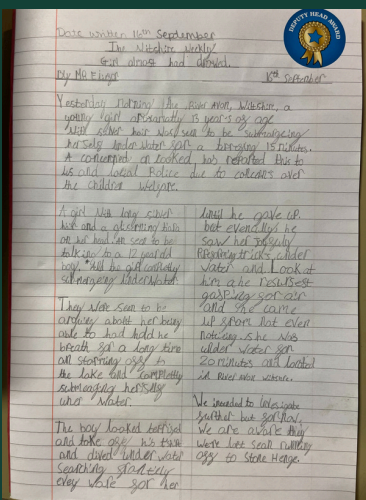 DEPUTY HEAD AWARD
Date written 16th September
The Wiltshire Weekly
Girl almost had drowned.
By MA
16th September
Yesterday morning The River Avon, Wiltshire, a
young girl aproximatly 13 years of age
With silver hair was seen to be submargeing
her self under water for a 15 minutes.
A concerned on looked, has reported this to
us and local Police due to over
the childrens welfare.
A girl with long silver
hair and a
on her head an seen to be
talking to a 12 year old
boy. the girl completly
submergeing underwater.
They were seen to be
arguing about her being
able to had hold he
breath for a long time
an off to
the lake and completly
submeaging herself
uner water.
The boy looked
and toke off his
and dived under water
searching
evey ware for her
until he gave up.
but evenchly he
saw her joyfully
tricks under
water and Look at
him a he
gasping for air
and she came
up from not even
noticeing she was
under water for
20 minutes and
in River Avon
We intended to investigate
further but for now
We are aware they
were last sean running
off to Stone Henge.